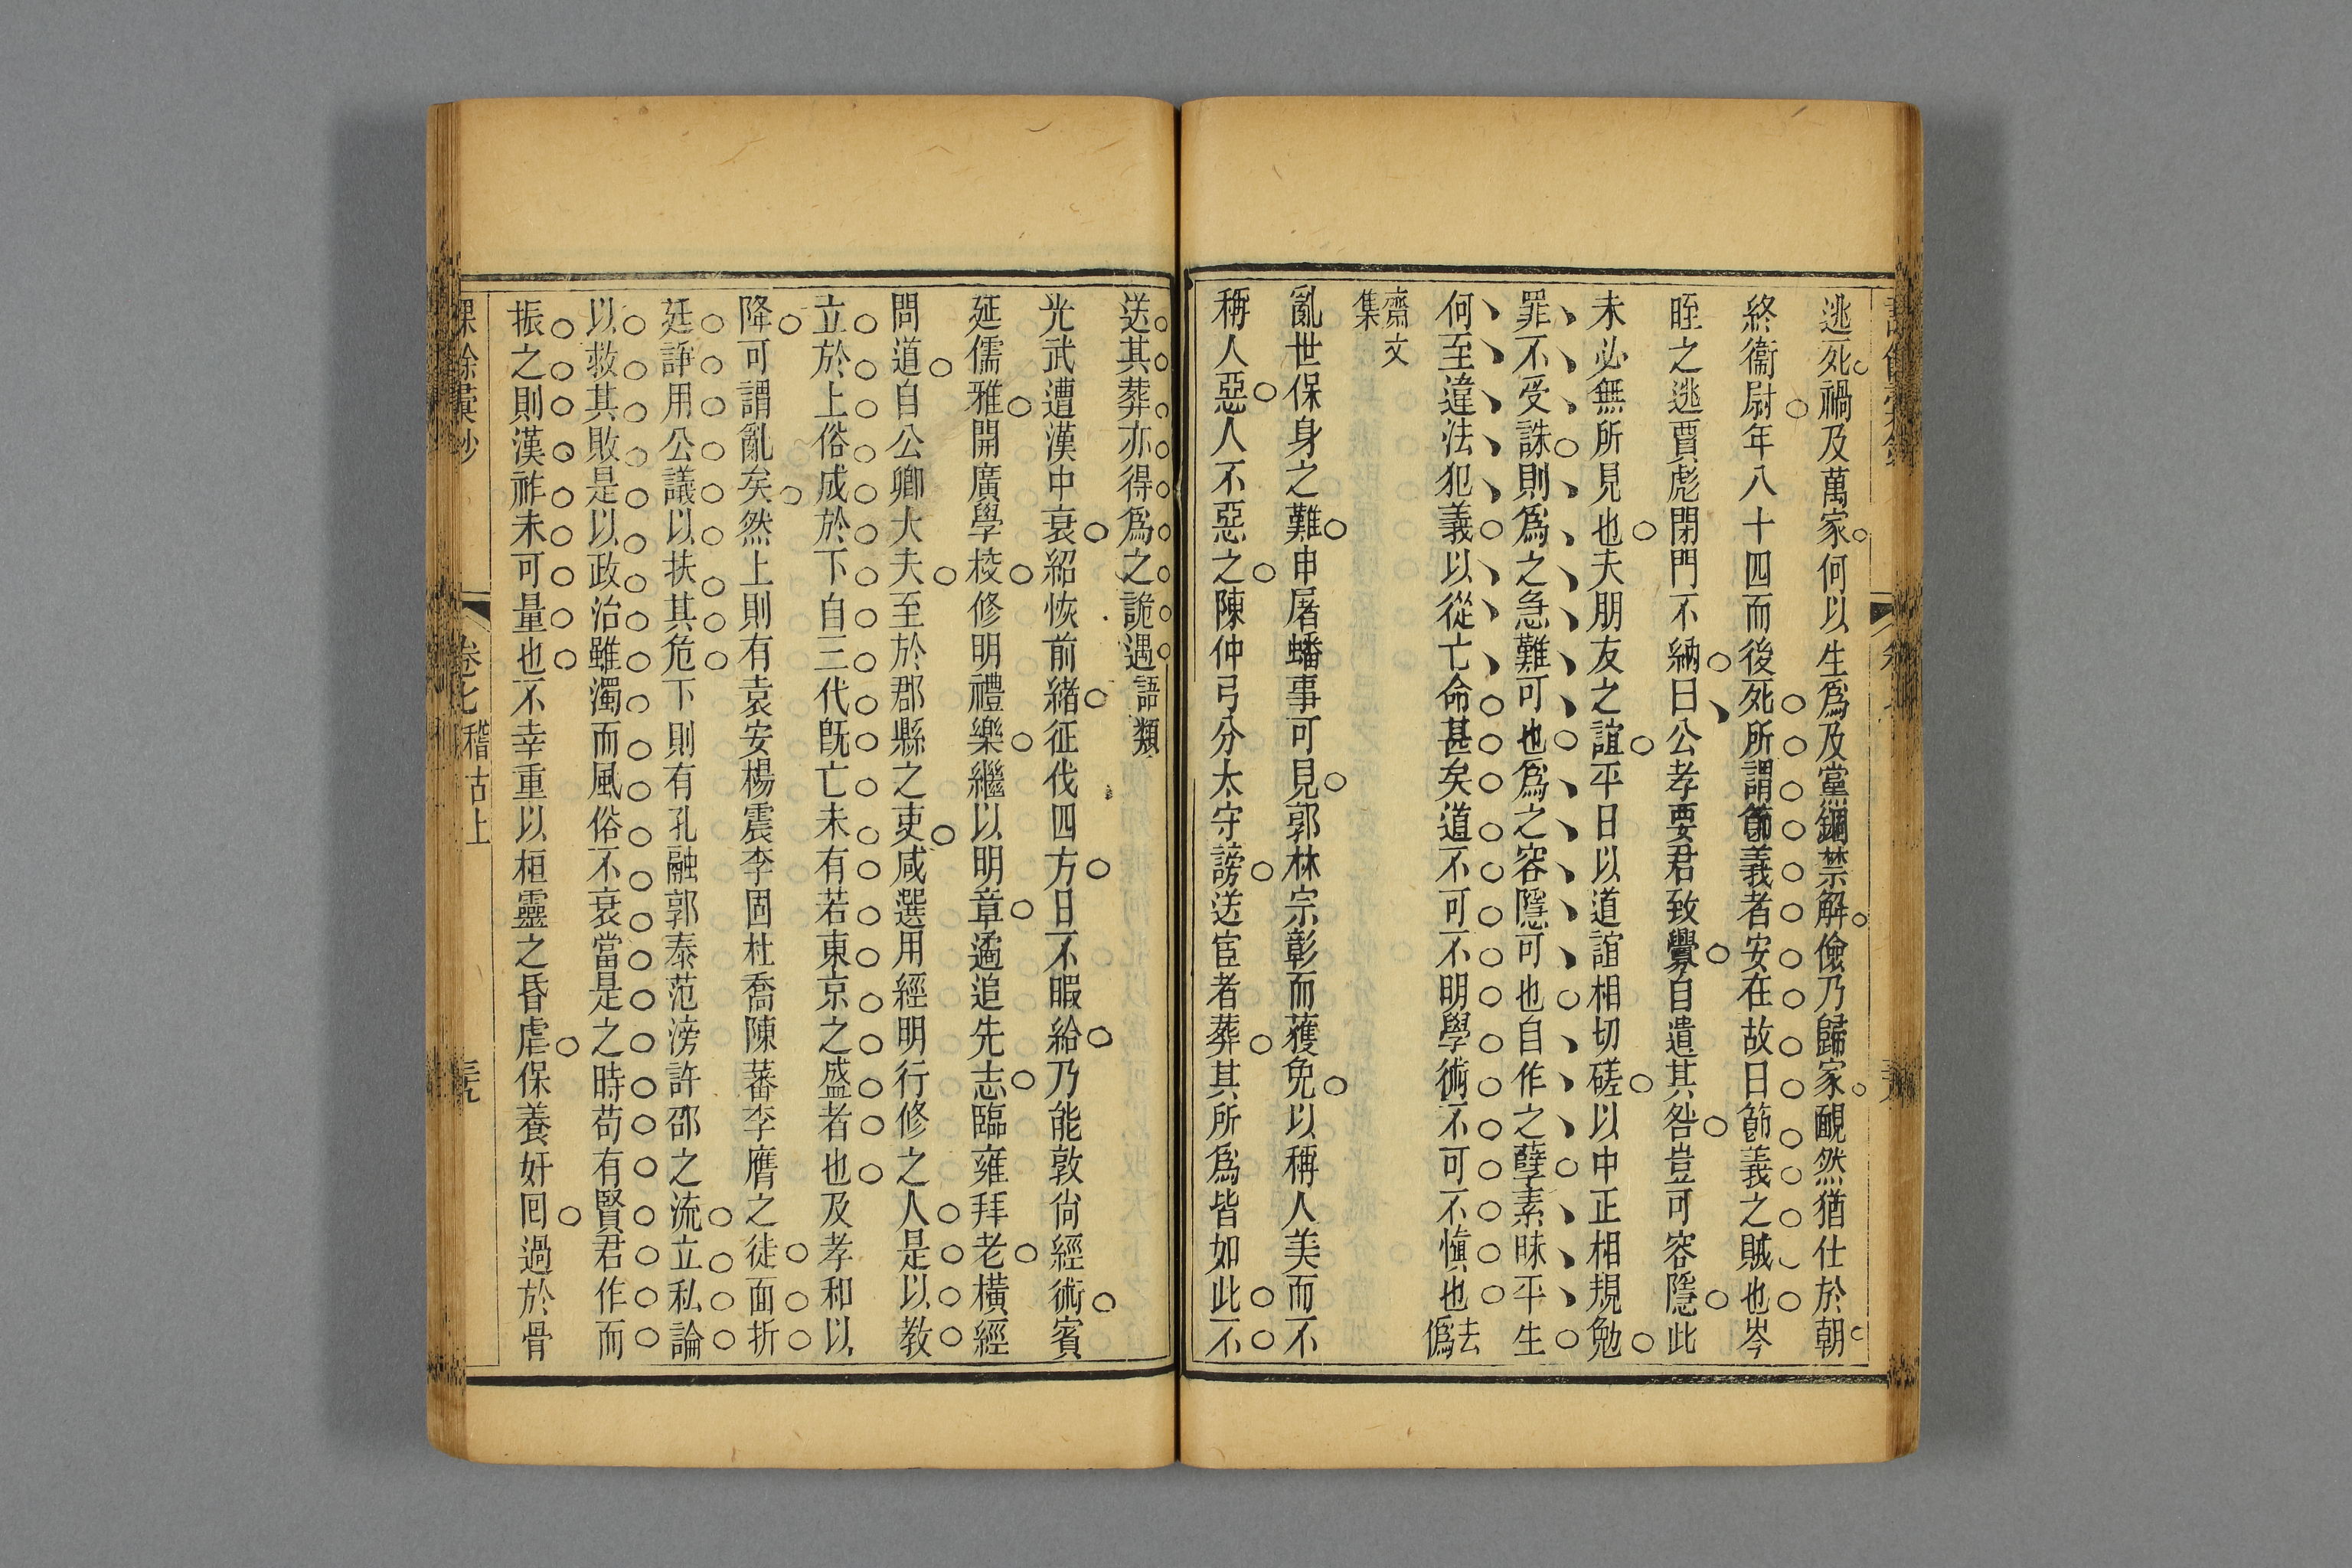 逃死禍及萬家何以生爲及黨錮禁解儉乃歸家靦然猶仕於朝
終衞尉年八十四而後死所謂節義者安在故曰節義之賊也岑
晊之逃賈彪閉門不納曰公孝要君致釁自遺其咎豈可容隱此
未必無所見也夫朋友之誼平日以道誼相切磋以中正相規勉
罪不受誅則爲之急難可也爲之容隱可也自作之孽素昧平生
何至違法犯義以從亡命甚矣道不可不明學術不可不愼也去僞
齋文
集
亂世保身之難申屠蟠事可見郭林宗彰而獲免以稱人美而不
稱人惡人不惡之陳仲弓分太守謗送宦者葬其所爲皆如此不
送其葬亦得爲之詭遇語類
光武遭漢中衰紹恢前緒征伐四方日不暇給乃能敦尙經術賓
延儒雅開廣學校修明禮樂繼以明章遹追先志臨雍拜老橫經
問道自公卿大夫至於郡縣之吏咸選用經明行修之人是以教
立於上俗成於下自三代旣亡未有若東京之盛者也及孝和以
降可謂亂矣然上則有袁安楊震李固杜喬陳蕃李膺之徒面折
廷諍用公議以扶其危下則有孔融郭泰范滂許邵之流立私論
以救其敗是以政治雖濁而風俗不衰當是之時苟有賢君作而
振之則漢祚未可量也不幸重以桓靈之昏虐保養奸回過於骨
課餘彙鈔
卷七
稽古上